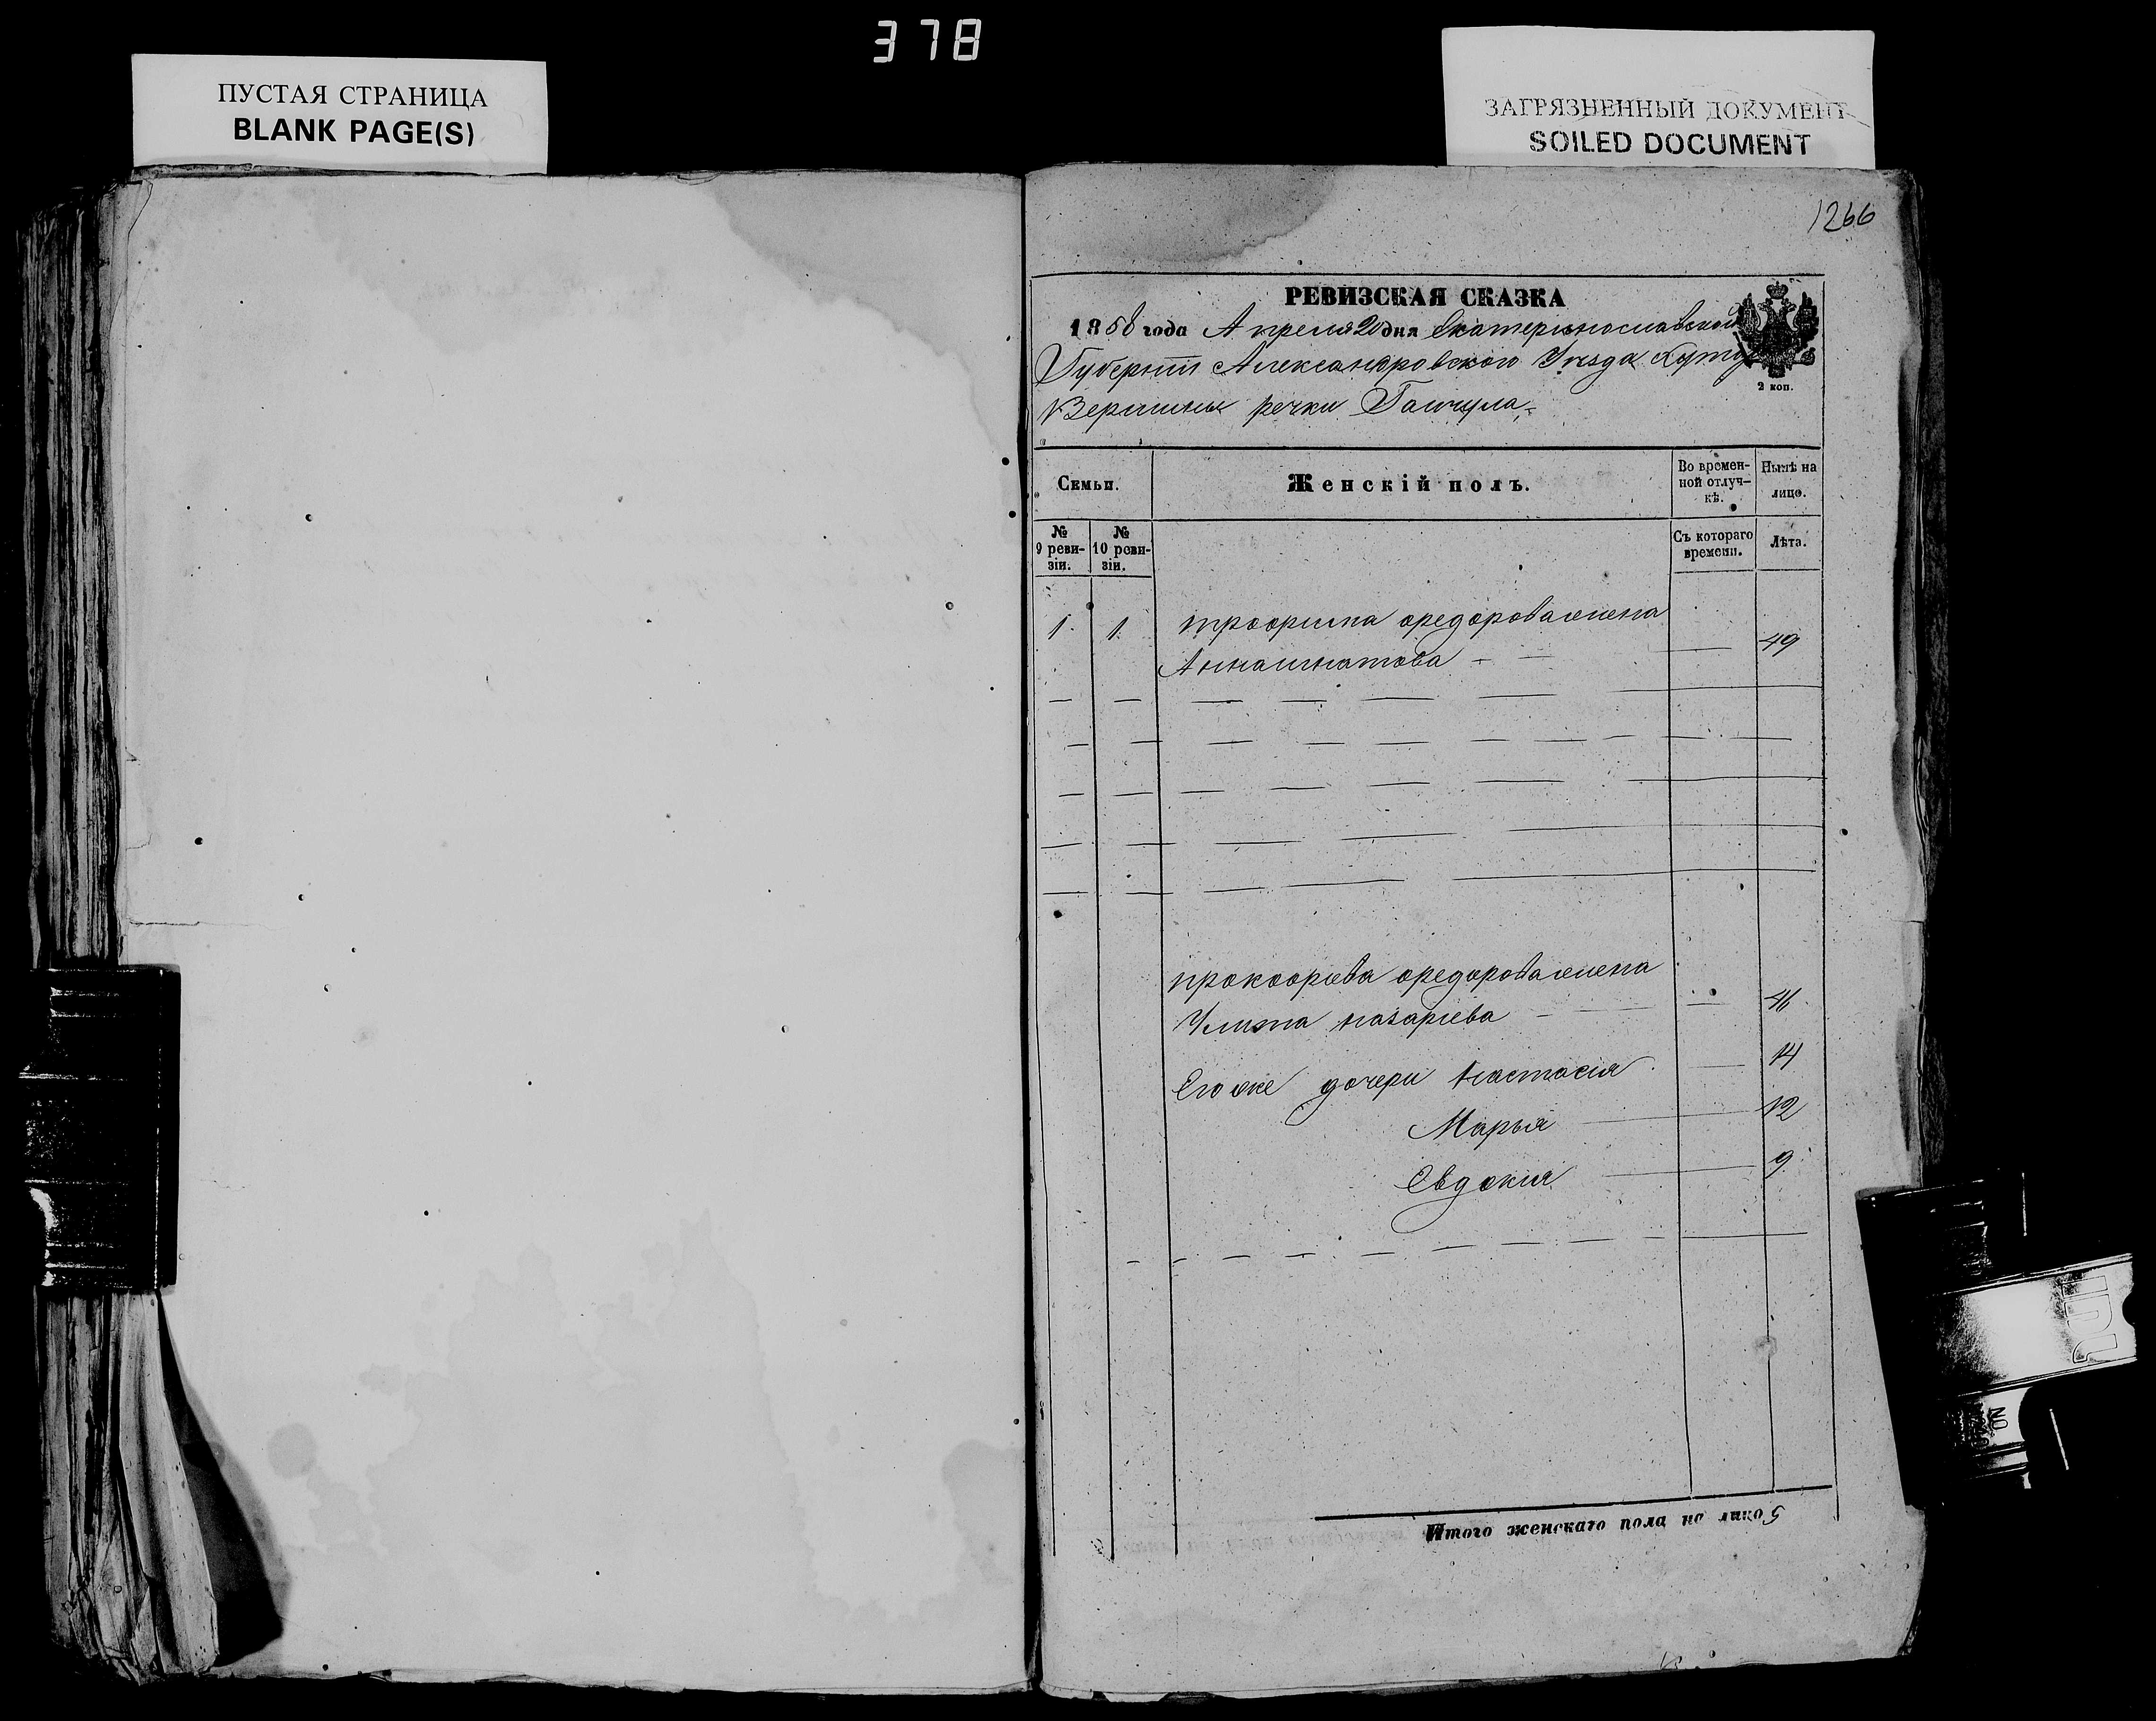 378
ПУСТАЯ СТРАНИЦА
BLANK PAGE(S)
ЗАГРЯЗНЕННЫЙ ДОКУМЕНТ
SOILED DOCUMENT
1266
РЕВИЗСКАЯ СКАЗКА
1858 года Апреля 20 дня Екатеринославской
Губерніи Александровского Уезда Хутор
Вершины речки Гайчула
2 коп.
Семьи.
Женскій полъ.
Во времен-
ной отлуч-
кѣ.
Нынѣ на
лицо.
№
9 реви-
зіи.
№
10 реви-
зіи.
Съ котораго
времени.
Лѣта.
1. 1. трофима федорова жена
Анна игнатова 49
прокофіева федорова жена
Улита назаріева 46
Его же дочери Настасия 14
Марья 12
Евдокия 9
Итого женскаго пола на лицо 5